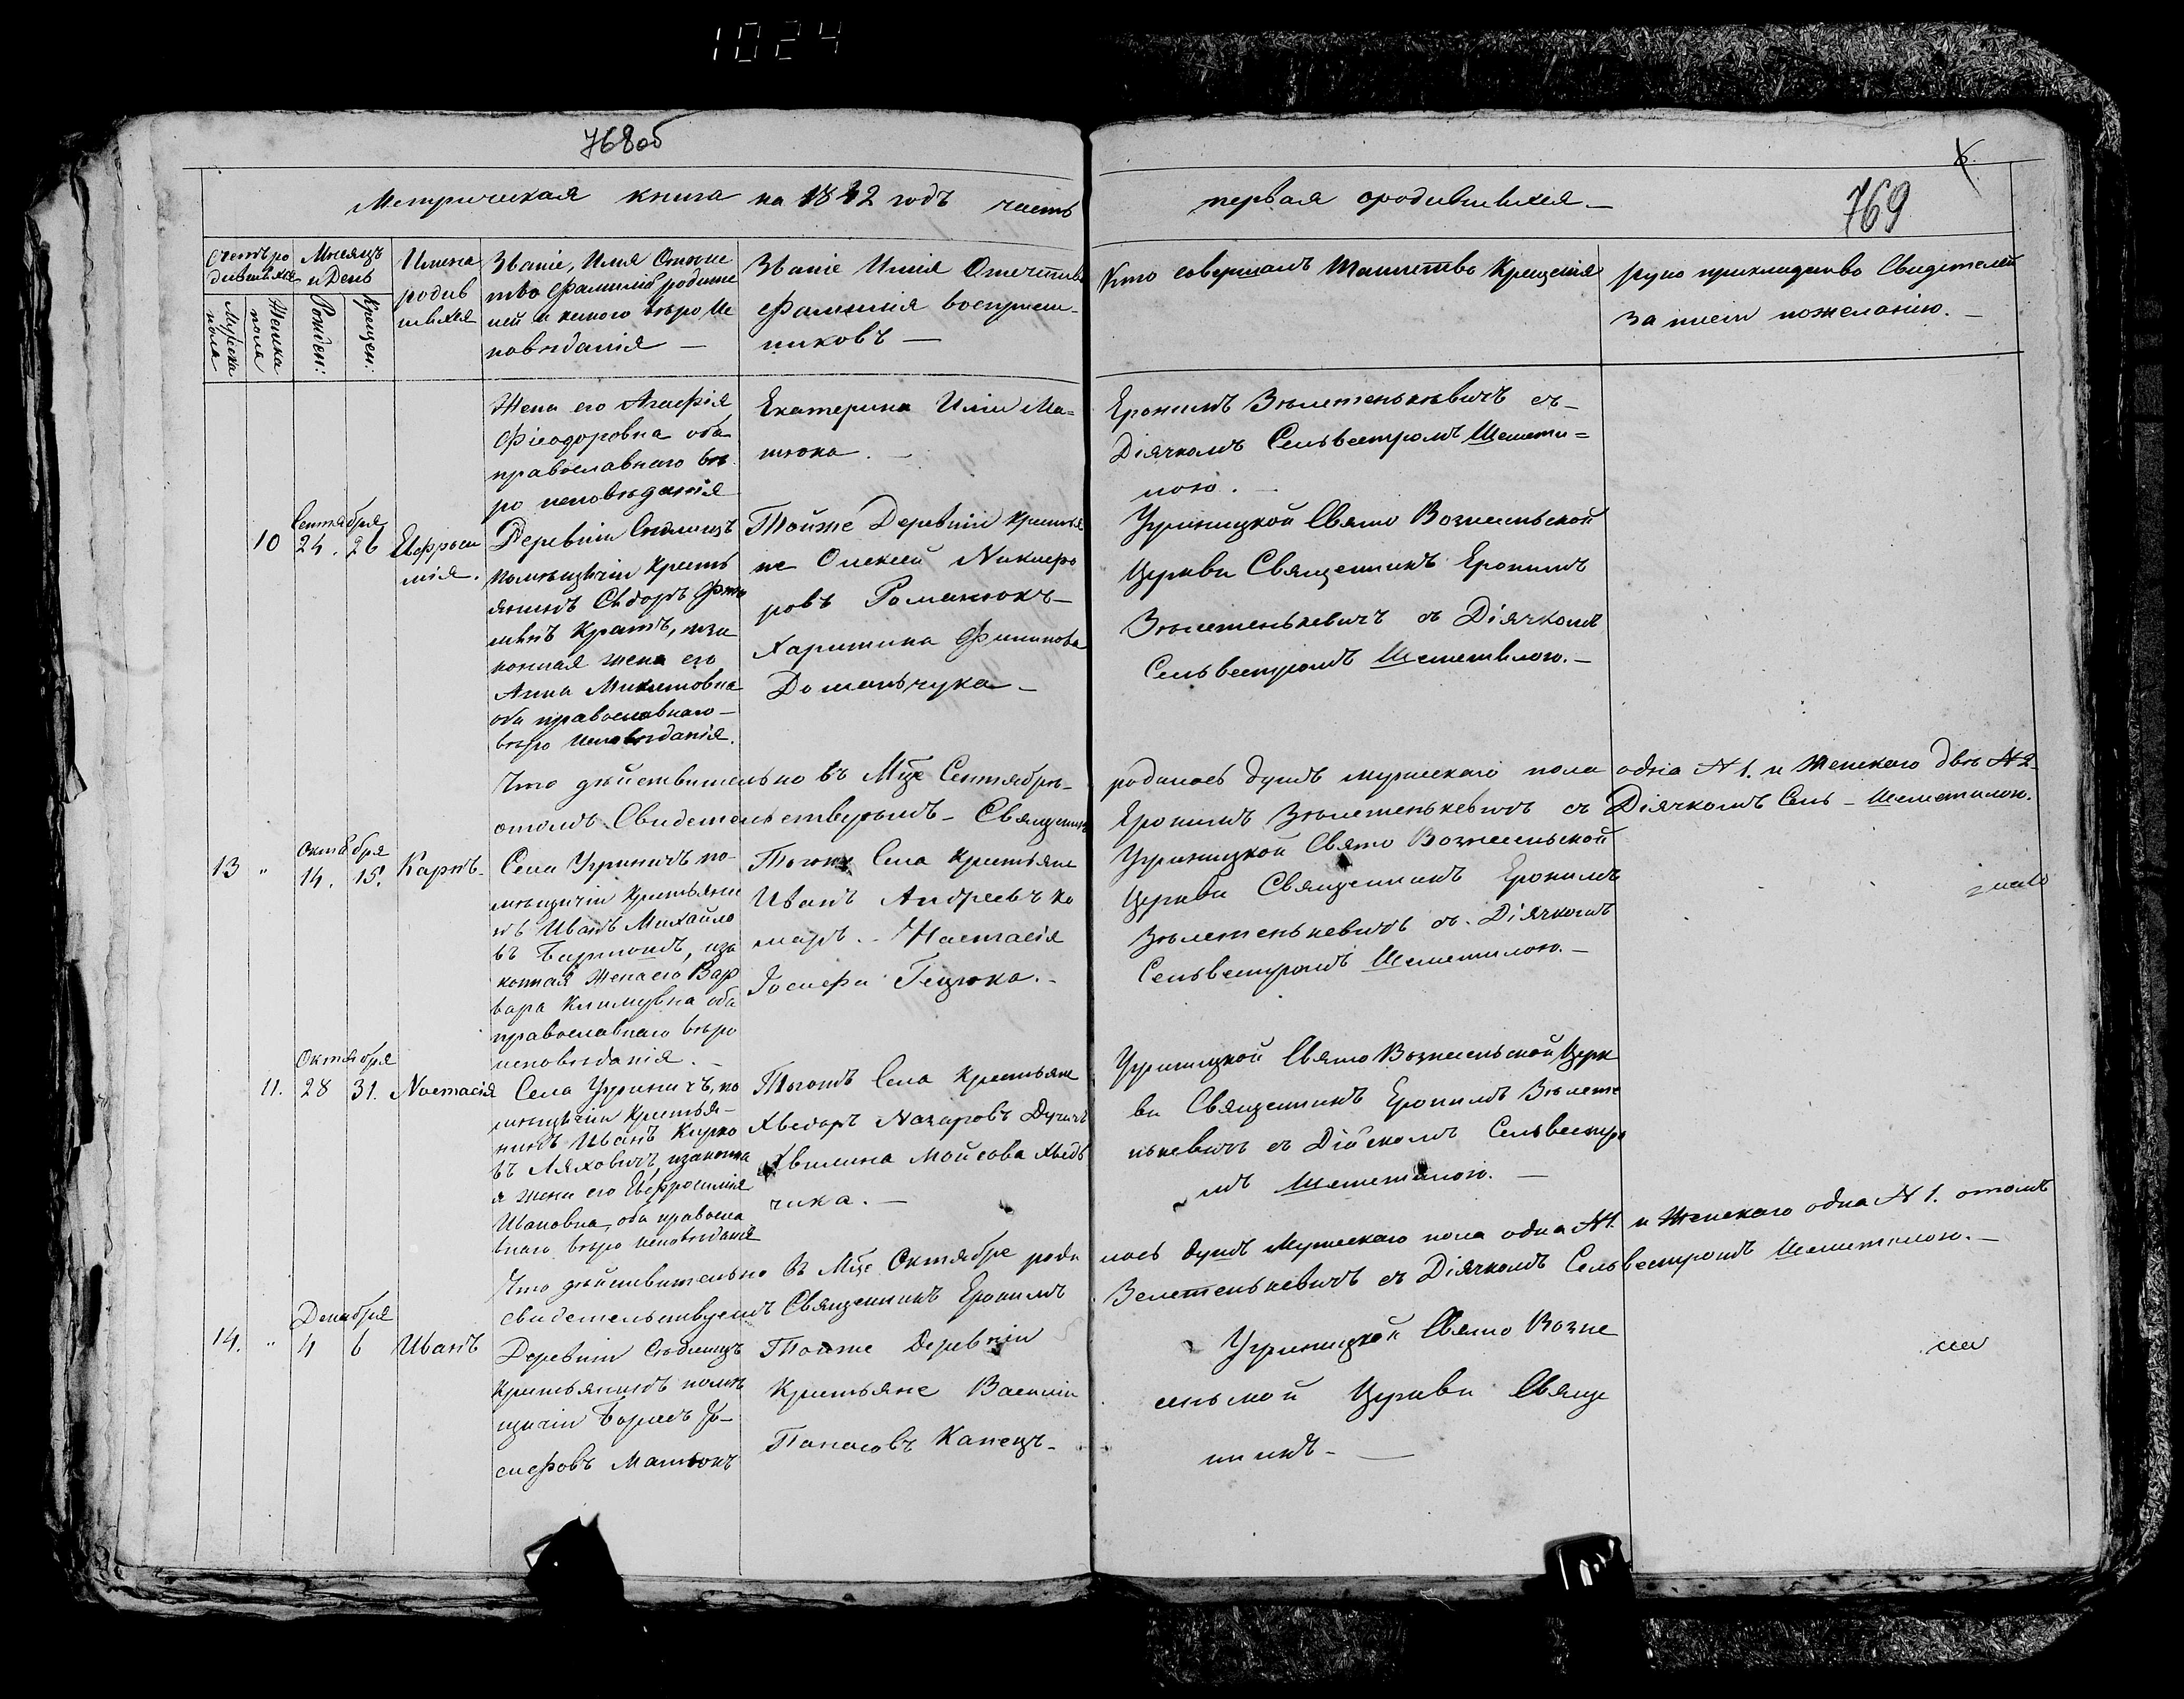 1024
768об
Метрическая книга на 1842 годъ часть
первая ородившихся.
769
Счетъ ро
дившихся
Мѣсяцъ
и День
Мужска
пола
Женска
пола
Рожден:
Крещен:
Имена
родив
шихся
Званіе, Имя Отече
тво Фамилія родите
лей и какого вѣро Ис
повѣданія
Званіе Имія Отечтиво
Фамилія воспріем-
никовъ
Кто совершалъ Таинство Крещенія
руко прикладство Свидетелей
записи пожеланію.
Жена его Агафія
Фіеодоровна оба
православнаго вѣ
ро исповѣданія
Екатерина Иліи Ма=
тюка.
Еронимъ Зѣлетенькѣвичъ съ
Діячкомъ Сельвестромъ Шемети=
лою.
10
Сентября
24. 26
Ефроси
нія.
Деревни
помѣщичіи Кресть
янинъ Сидоръ
Кратъ, иза
конная жена его
Анна Микитовна
оба православнаго
вѣро исповѣданія.
Тойже Деревніи Крестья
не Олексей Никифо
ровъ Романюкъ
Харитина Филипова
Доманьчука
Угриницкой Свято Вознесеньской
Церкви Священникъ Еронимъ
Зѣлетенькевичъ съ Діячкомъ
Сельвестромъ Шеметилою.
Что дѣйствительно въ Мце Сентябрѣ
родилось душъ мужескаго пола одна N 1. и Женскаго двѣ N 2
отомъ Свидетельствуемъ Священникъ
Еронимъ Зѣлетенькевичъ съ Діячкомъ Сель Шеметилою.
13 "
Октября
14. 15.
Карпъ
Села Угриничъ по-
мѣщичіи Крестьяни
нъ Иванъ Михайло
въ , иза
конная Жена его Вар
вара Климувна оба
православнаго вѣро
исповѣданія.
Тогожъ Села Крестьяне
Иванъ Андреевъ Ко
маръ. Настасія
Іосифа Гецюка.
Угриницкой Свято Вознесеньской
Церкви Священникъ Еронимъ
Зѣлетенькевичъ съ. Діячкомъ
Сельвестромъ Шеметилою.
11.
Октября
28 31.
Настасія
Села Угриничъ, по
мѣщичіи Крестья-
нинъ Иванъ Карпо
въ Ляховичъ, изаконна
я жена его Евфросинія
Ивановна, оба правосла
внаго вѣро исповѣданія
Тогожъ Села Крестьяне
Хведоръ Назаровъ
Хвилина Мойсова Хвед
чика.
Угриницкой Свято Вознесеньской Церк
ви Священникъ Еронимъ Зѣлете
нькевичъ съ Діячкомъ Сельвестро
мъ Шеметилою.
Что дѣйствительно въ Мце Октябре роди
лось душъ Мужескаго пола одна N 1. и Женскаго одна N 1. отомъ
свидетельствуемъ Священникъ Еронимъ
Зелетенькевичъ съ Діячкомъ Сельвестромъ Шеметилою.
14. "
Декабря
4 6
Иванъ
Деревніи
Крестьянинъ помѣ
щичіи Борисъ Іо-
сифовъ Матюкъ
Тойже Деревніи
Крестьяне Василій
Панасовъ Капецъ
Угриницкой Свято Возне
сеньской Церкви Свяще
нникъ